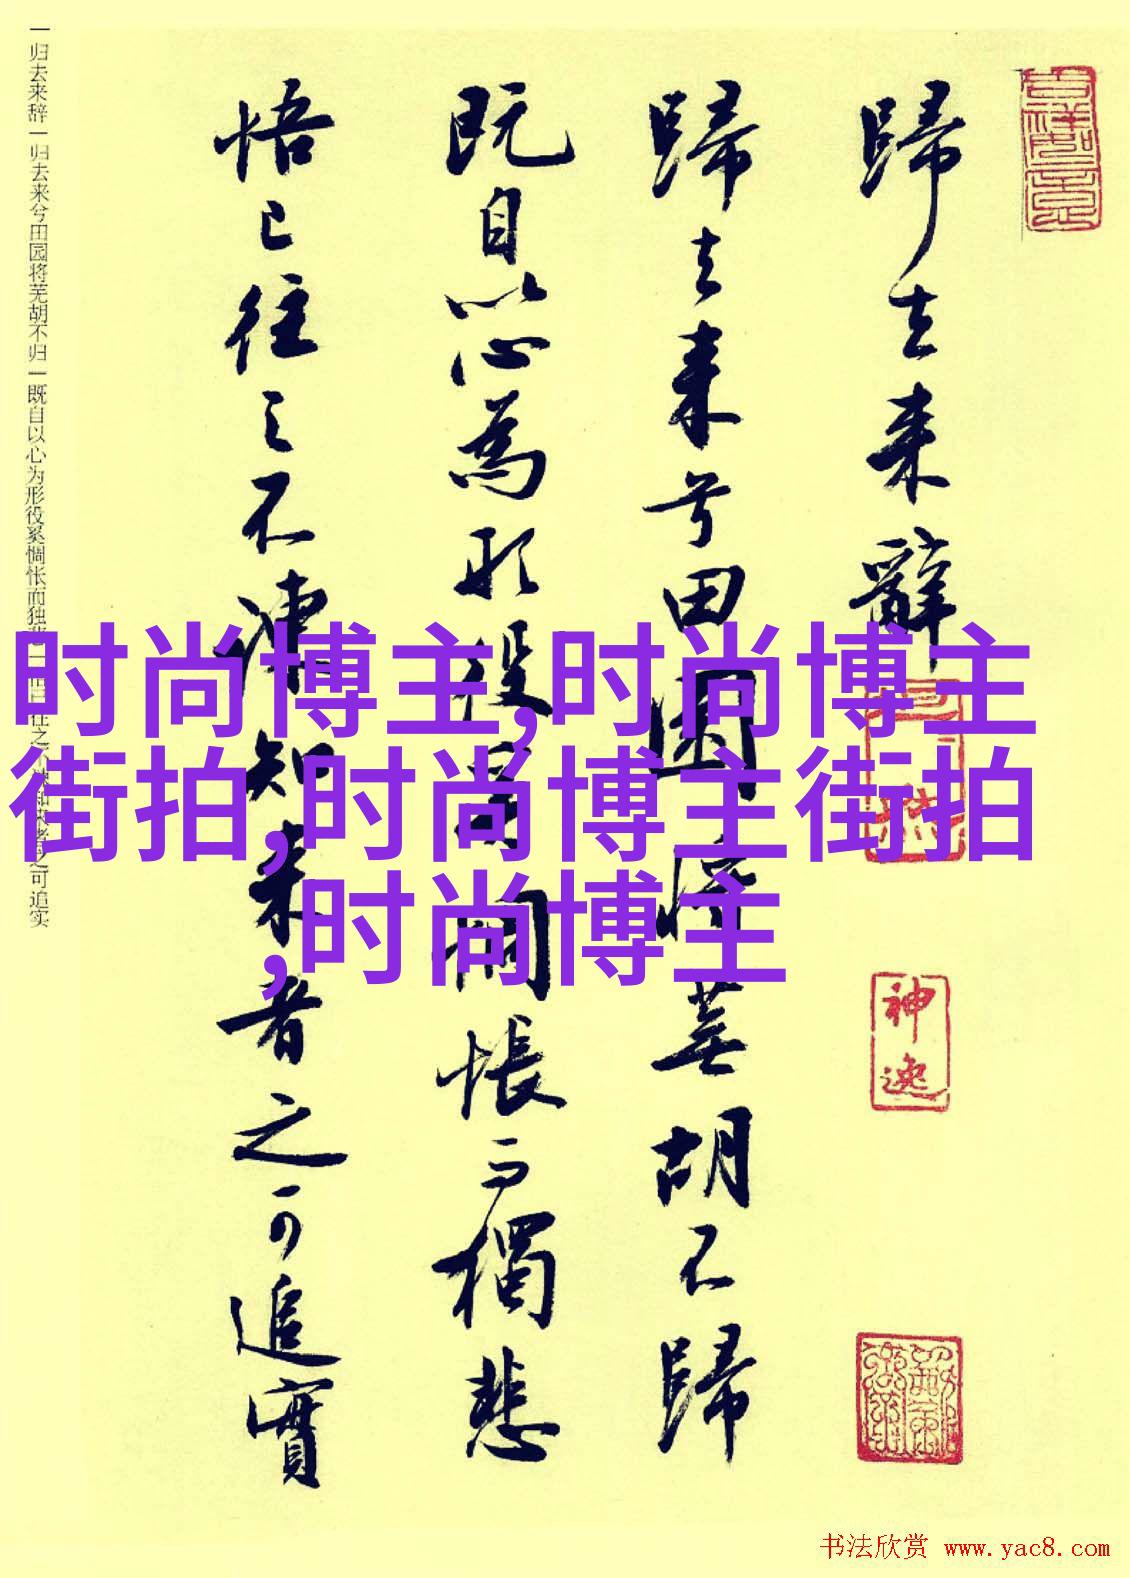 歸去来辭
歸去来兮田園将蕪胡不歸
既自以心為形役奚惆悵而獨悲
悟已往之不諫知来者之可追實
神逸
一归去来辞一归去来兮田园将芜胡不归一既自以心为形役奚惆怅而独悲一悟已往之不谏知来者之可追实
时尚博主,时尚博主
街拍,时尚博主街拍
,时尚博主
书法欣赏 www.yac8.com